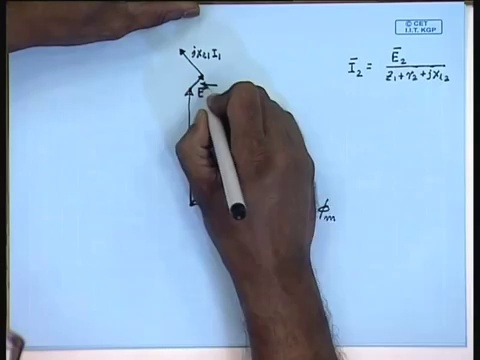 © CET
I.I.T. KGP
jx_{l1} I_1
Ī_2 = Ē_2 / z_1 + r_2 + jx_{l2}
E
ϕ_m